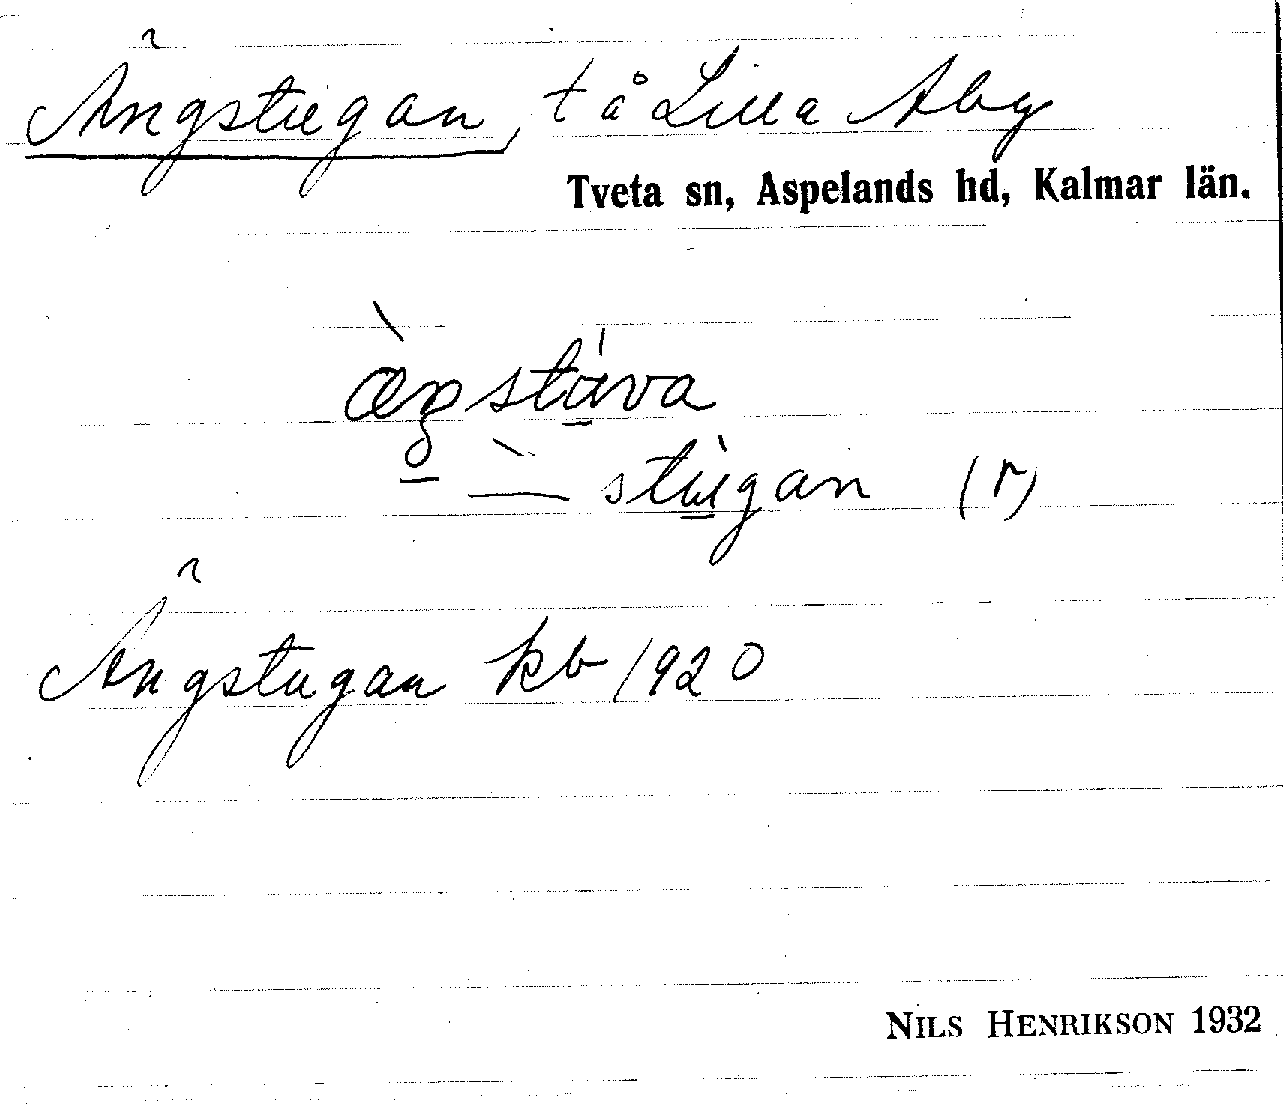 Ängstugan, t å Lilla Åby
Tveta sn, Aspelands hd, Kalmar län.
stugan (r)
Ängstugan kb 1920
NILS HENRIKSON 1932